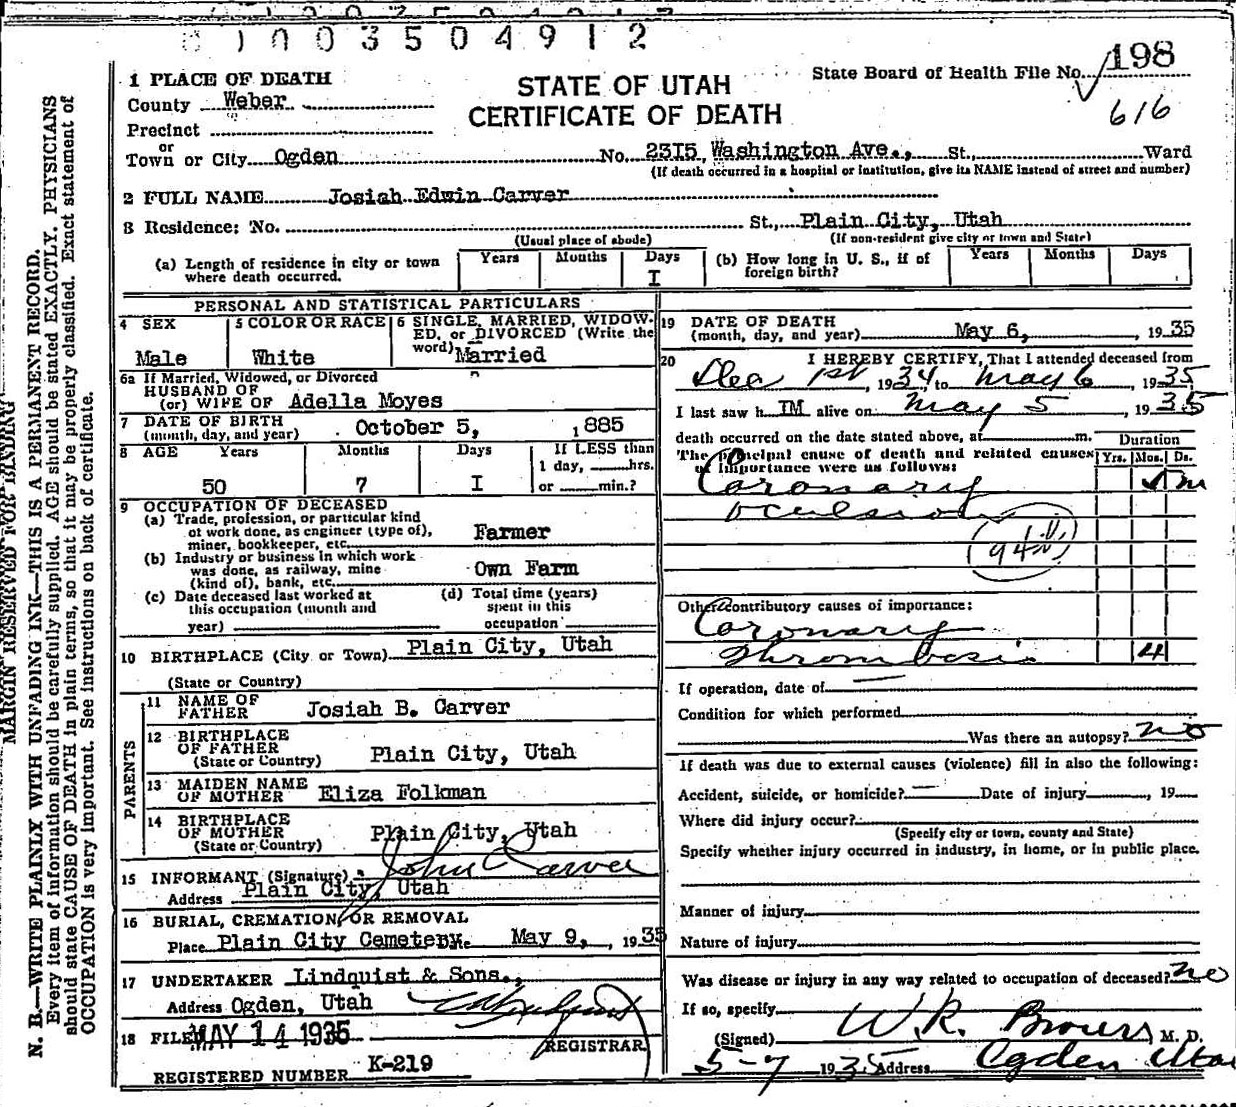 01003504912
1 PLACE OF DEATH
County Weber
Precinct
or
Town or City Ogden No. 2315 Washington Ave., St., Ward
(If death occurred in a hospital or institution, give its NAME instead of street and number)
STATE OF UTAH
CERTIFICATE OF DEATH
State Board of Health File No. 198
616
2 FULL NAME Josiah Edwin Carver
3 Residence: No. St., Plain City, Utah
(Usual place of abode) (If non-resident give city or town and State)
(a) Length of residence in city or town where death occurred. Years Months Days I
(b) How long in U. S., if of foreign birth? Years Months Days
PERSONAL AND STATISTICAL PARTICULARS
4 SEX
Male
5 COLOR OR RACE
White
6 SINGLE, MARRIED, WIDOW-
ED, or DIVORCED (Write the
word) Married
6a If Married, Widowed, or Divorced
HUSBAND OF
(or) WIFE OF Adella Moyes
7 DATE OF BIRTH
(month, day, and year) October 5, 1885
8 AGE Years Months Days If LESS than
1 day, hrs.
50 7 I or min.?
9 OCCUPATION OF DECEASED
(a) Trade, profession, or particular kind
of work done, as engineer (type of),
miner, bookkeeper, etc. Farmer
(b) Industry or business in which work
was done, as railway, mine
(kind of), bank, etc. Own Farm
(c) Date deceased last worked at
this occupation (month and
year)
(d) Total time (years)
spent in this
occupation
10 BIRTHPLACE (City or Town) Plain City, Utah
(State or Country)
PARENTS
11 NAME OF
FATHER Josiah B. Carver
12 BIRTHPLACE
OF FATHER
(State or Country) Plain City, Utah
13 MAIDEN NAME
OF MOTHER Eliza Folkman
14 BIRTHPLACE
OF MOTHER
(State or Country) Plain City, Utah
15 INFORMANT (Signature) John Carver
Address Plain City, Utah
16 BURIAL, CREMATION, OR REMOVAL
Place Plain City Cemetery. May 9, , 1935
17 UNDERTAKER Lindquist & Sons.,
Address Ogden, Utah
18 FILED MAY 14 1935
REGISTRAR
REGISTERED NUMBER K-219
19 DATE OF DEATH
(month, day, and year) May 6, 1935
20 I HEREBY CERTIFY, That I attended deceased from
Dec 1st, 1934 to May 6, 1935
I last saw h IM alive on May 5, 1935
death occurred on the date stated above, at m.
Duration
Yrs. Mos. Ds.
The principal cause of death and related causes
of importance were as follows:
Coronary
occulsion
94
Other contributory causes of importance:
Coronary
Thrombosis 4
If operation, date of
Condition for which performed
Was there an autopsy? no
If death was due to external causes (violence) fill in also the following:
Accident, suicide, or homicide? Date of injury , 19
Where did injury occur?
(Specify city or town, county and State)
Specify whether injury occurred in industry, in home, or in public place.
Manner of injury
Nature of injury
Was disease or injury in any way related to occupation of deceased? no
If so, specify
(Signed) W.R. Brown, M. D.
5-7 1935 Address Ogden Utah
MARGIN RESERVED FOR BINDING
N. B.—WRITE PLAINLY WITH UNFADING INK—THIS IS A PERMANENT RECORD.
Every item of information should be carefully supplied. AGE should be stated EXACTLY. PHYSICIANS
should state CAUSE OF DEATH in plain terms, so that it may be properly classified. Exact statement of
OCCUPATION is very important. See instructions on back of certificate.